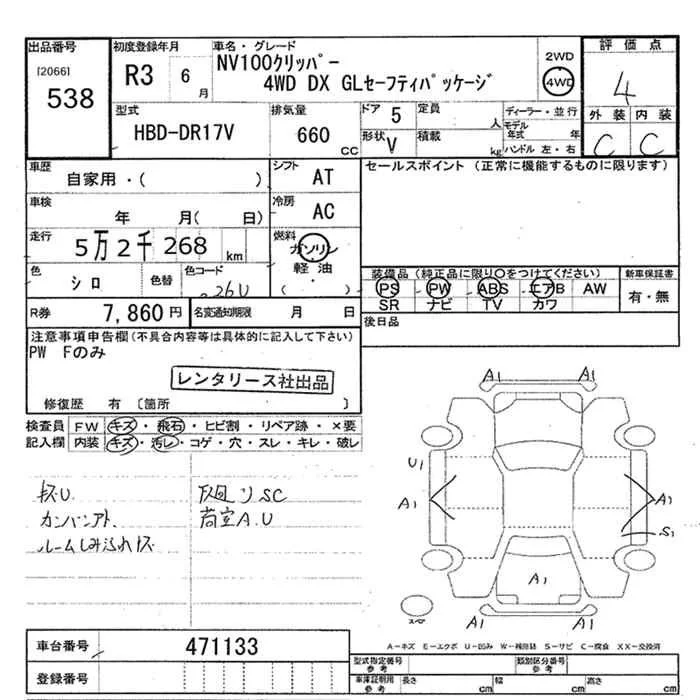 出品番号
[2066]
538
初度登録年月
R3 6月
車名・グレード
NV100クリッパー
4WD DX GLセーフティパッケージ
2WD
4WD
評価点
4
外装 内装
C C
型式
HBD-DR17V
排気量
660 CC
ドア 5
形状 V
定員 人
積載 kg
ディーラー・並行
モデル年式 年
ハンドル 左・右
車歴
自家用・( )
シフト AT
車検
年 月( 日)
冷房 AC
走行
5万2千268 km
燃料
ガソリン
軽油
( )
色
シロ
色替
色コード
26U
セールスポイント (正常に機能するものに限ります)
装備品(純正品に限り○をつけてください)
PS PW ABS エアB AW
SR ナビ TV カワ
新車保証書
有・無
R券 7,860円
名変通知期限 月 日
後日品
注意事項申告欄(不具合内容等は具体的に記入して下さい)
PW Fのみ
レンタリース社出品
修復歴 有 〔箇所 〕
検査員記入欄
FW キズ・飛石・ヒビ割・リペア跡・×要
内装 キズ・汚レ・コゲ・穴・スレ・キレ・破レ
キズU
カンバンアト
ルームしみ汚れキズ
下廻りSC
荷室A.U
A1 A1
U1
A1 A1
S1
A1
A1 A1
スペア
A－キズ E－エクボ U－凹み W－補修跡 S－サビ C－腐食 XX－交換済
車台番号 471133
登録番号
型式指定番号 参考
類別区分番号 参考
車庫証明用 参考
長さ cm 幅 cm 高さ cm